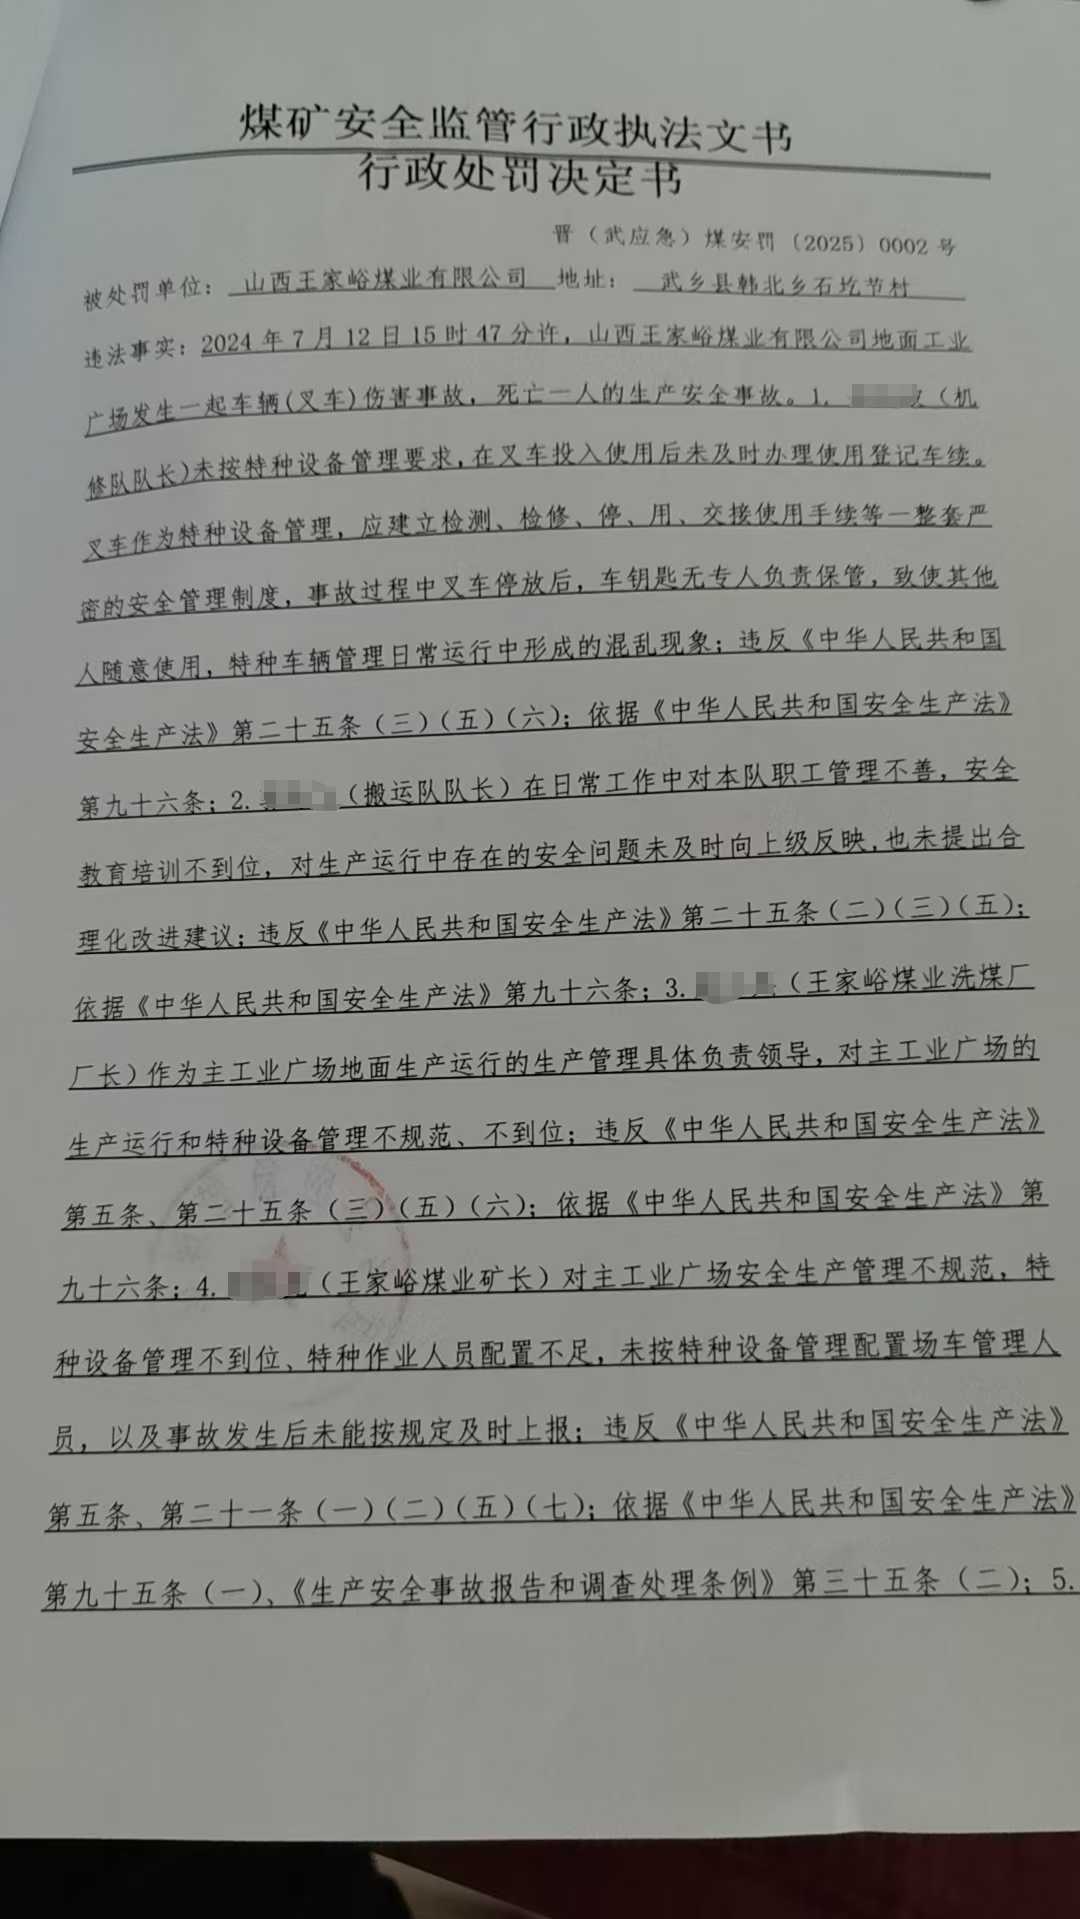 煤矿安全监管行政执法文书
行政处罚决定书
晋（武应急）煤安罚〔2025〕0002号
被处罚单位：山西王家峪煤业有限公司 地址：武乡县韩北乡石圪节村
违法事实：2024年7月12日15时47分许，山西王家峪煤业有限公司地面工业
广场发生一起车辆(叉车)伤害事故，死亡一人的生产安全事故。1.（机
修队队长)未按特种设备管理要求,在叉车投入使用后未及时办理使用登记车续。
叉车作为特种设备管理，应建立检测、检修、停、用、交接使用手续等一整套严
密的安全管理制度，事故过程中叉车停放后，车钥匙无专人负责保管，致使其他
人随意使用，特种车辆管理日常运行中形成的混乱现象；违反《中华人民共和国
安全生产法》第二十五条（三）（五）（六）；依据《中华人民共和国安全生产法》
第九十六条；2.（搬运队队长）在日常工作中对本队职工管理不善，安全
教育培训不到位，对生产运行中存在的安全问题未及时向上级反映,也未提出合
理化改进建议；违反《中华人民共和国安全生产法》第二十五条（二）（三）（五）；
依据《中华人民共和国安全生产法》第九十六条；3.（王家峪煤业洗煤厂
厂长）作为主工业广场地面生产运行的生产管理具体负责领导，对主工业广场的
生产运行和特种设备管理不规范、不到位；违反《中华人民共和国安全生产法》
第五条、第二十五条（三）（五）（六）；依据《中华人民共和国安全生产法》第
九十六条；4.（王家峪煤业矿长）对主工业广场安全生产管理不规范，特
种设备管理不到位、特种作业人员配置不足，未按特种设备管理配置场车管理人
员，以及事故发生后未能按规定及时上报；违反《中华人民共和国安全生产法》
第五条、第二十一条（一）（二）（五）（七）；依据《中华人民共和国安全生产法》
第九十五条（一）、《生产安全事故报告和调查处理条例》第三十五条（二）；5.